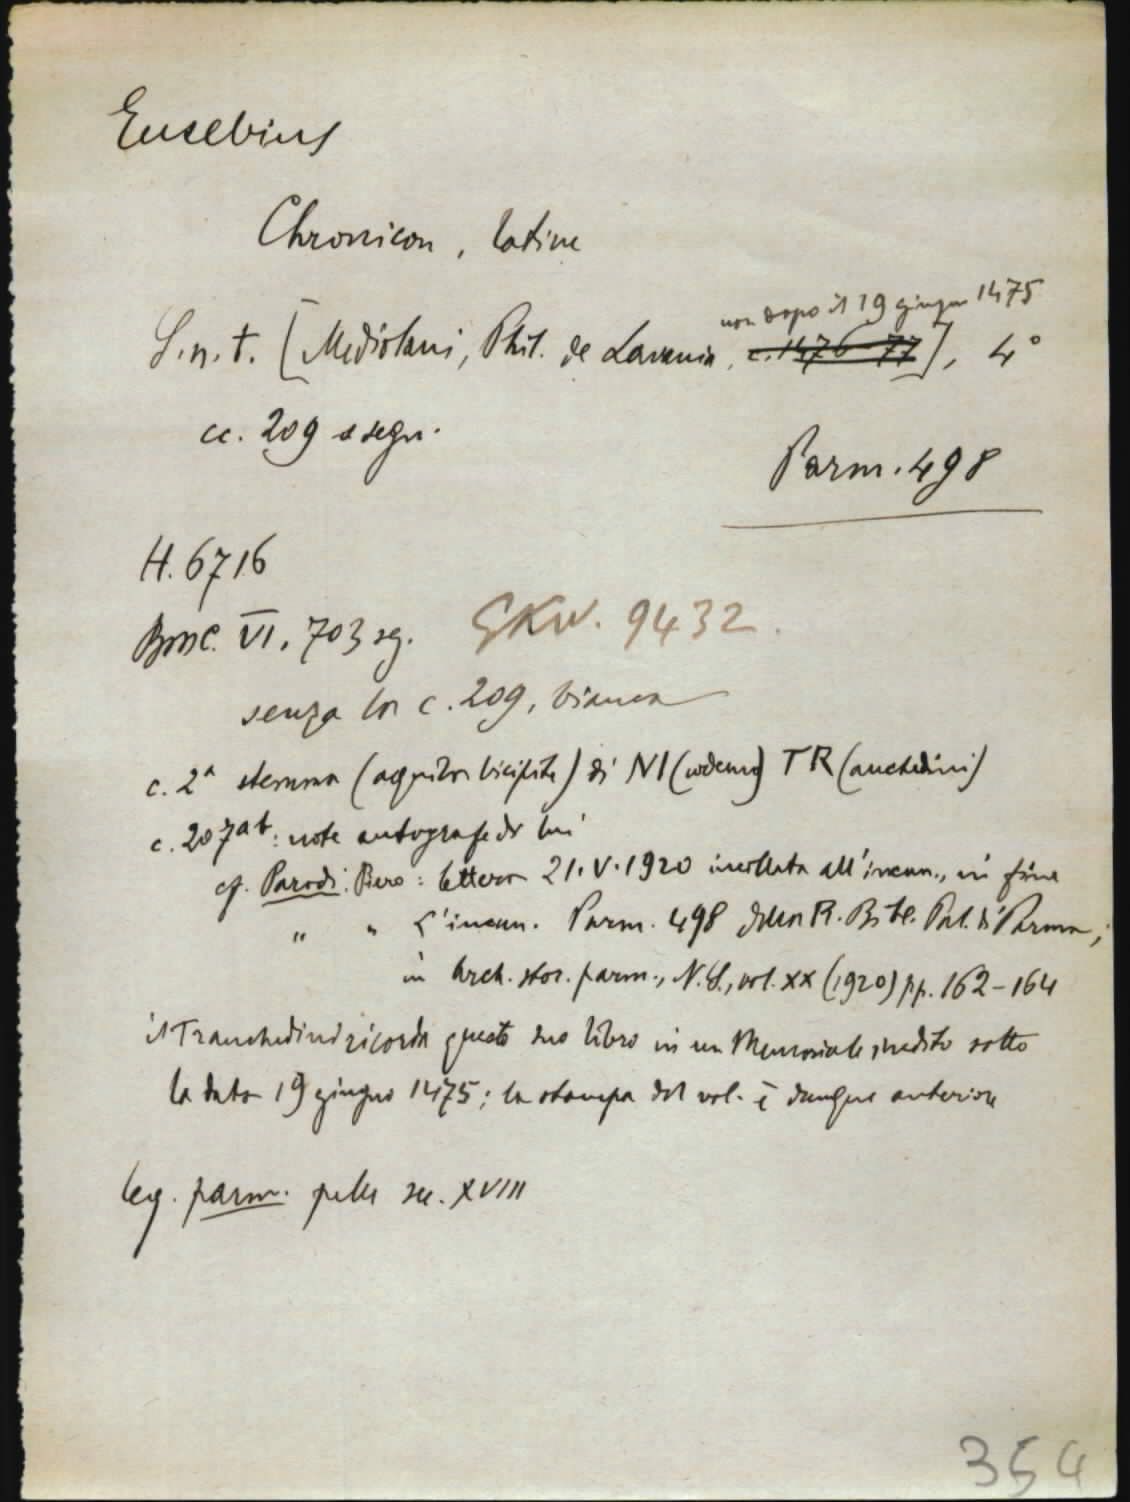 Eusebius
Chronicon, latine
non dopo il 19 giugno 1475
S.n.t. [Mediolani, Phil. de Lavania, c. 1476-77], 4°
cc. 209 segn.
Parm. 498
H. 6716
BMC. VI. 703 sg. GKW. 9432.
senza la c. 209, bianca
c. 2ª stemma (aquila bicipite) di NI(codemo) TR(anchedini)
c. 207ab: note autografe di lui
cf. Parodi Piero: lettera 21.V.1920 incollata all'incun., in fine
" " L'incun. Parm. 498 della R. Bibl. Pal. di Parma,
in Arch. stor. parm., N.S., vol. XX (1920) pp. 162-164
il Tranchedini ricorda questo suo libro in un Memoriale inedito sotto
la data 19 giugno 1475; la stampa del vol. è dunque anteriore
leg. parm. pelle sec. XVIII
354